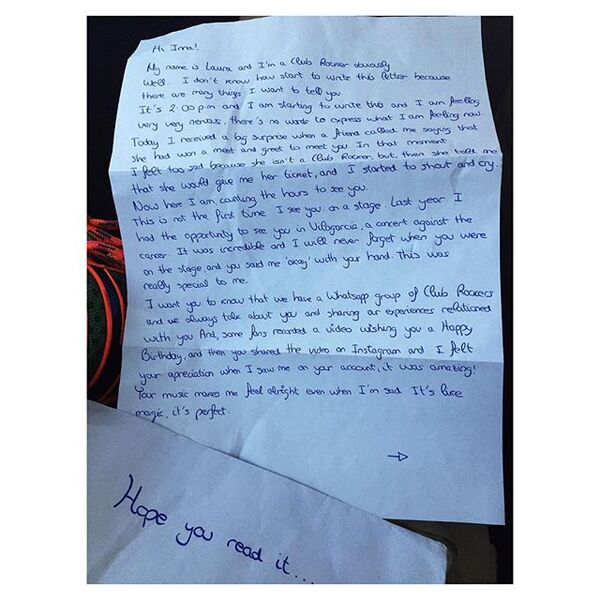 Hi Inna!
My name is Laura and I'm a Club Rocker obviously
Well. I don't know how start to write this letter because
there are many things I want to tell you
It's 2:00 p.m and I am starting to write this and I am feeling
very very nervous, there's no words to express what I am feeling now.
Today I received a big surprise when a friend called me saying that
she had won a meet and greet to meet you. In that moment
I felt too sad because she isn't a Club Rocker, but then she told me
that she would give me her ticket, and I started to shout and cry..
Now here I am counting the hours to see you.
This is not the first time I see you on a stage. Last year I
had the opportunity to see you in Vilagarcia, a concert against the
cancer. It was incredible and I will never forget when you were
on the stage, and you said me 'okay' with your hand. This was
really special to me.
I want you to know that we have a Whatsapp group of Club Rockers
and we always talk about you and sharing our experiences relationed
with you And, some fans recorded a video wishing you a Happy
Birthday, and then you shared the video on Instagram and I felt
your apreciation when I saw me on your account, it was amazing!
Your music makes me feel alright even when I'm sad. It's like
magic, it's perfect.
→
Hope you read it...